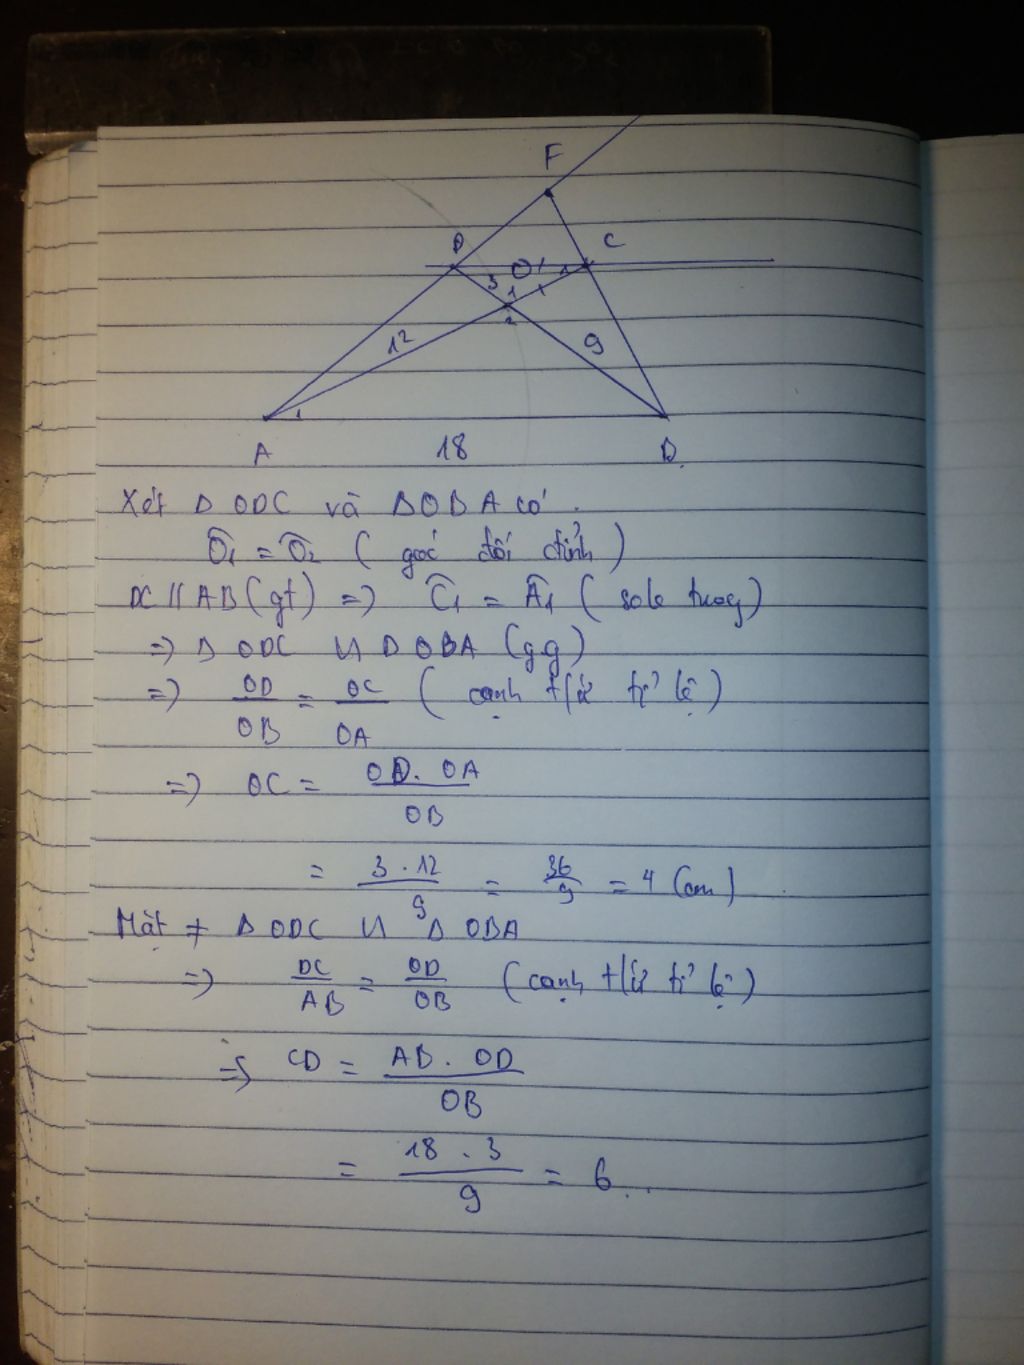 F
D C
3 O 1 1
1
2
12 9
1
A 18 B
Xét Δ ODC và Δ OBA có
Ô1 = Ô2 ( góc đối đỉnh )
DC // AB (gt) => Ĉ1 = Â1 ( sole trong )
=> Δ ODC ∽ Δ OBA (g.g)
=> OD/OB = OC/OA ( cạnh t/ứ tỉ lệ )
=> OC = OD . OA / OB
= 3 . 12 / 9 = 36/9 = 4 (cm)
Mặt ≠ Δ ODC ∽ Δ OBA
=> DC/AB = OD/OB ( cạnh t/ứ tỉ lệ )
=> CD = AB . OD / OB
= 18 . 3 / 9 = 6